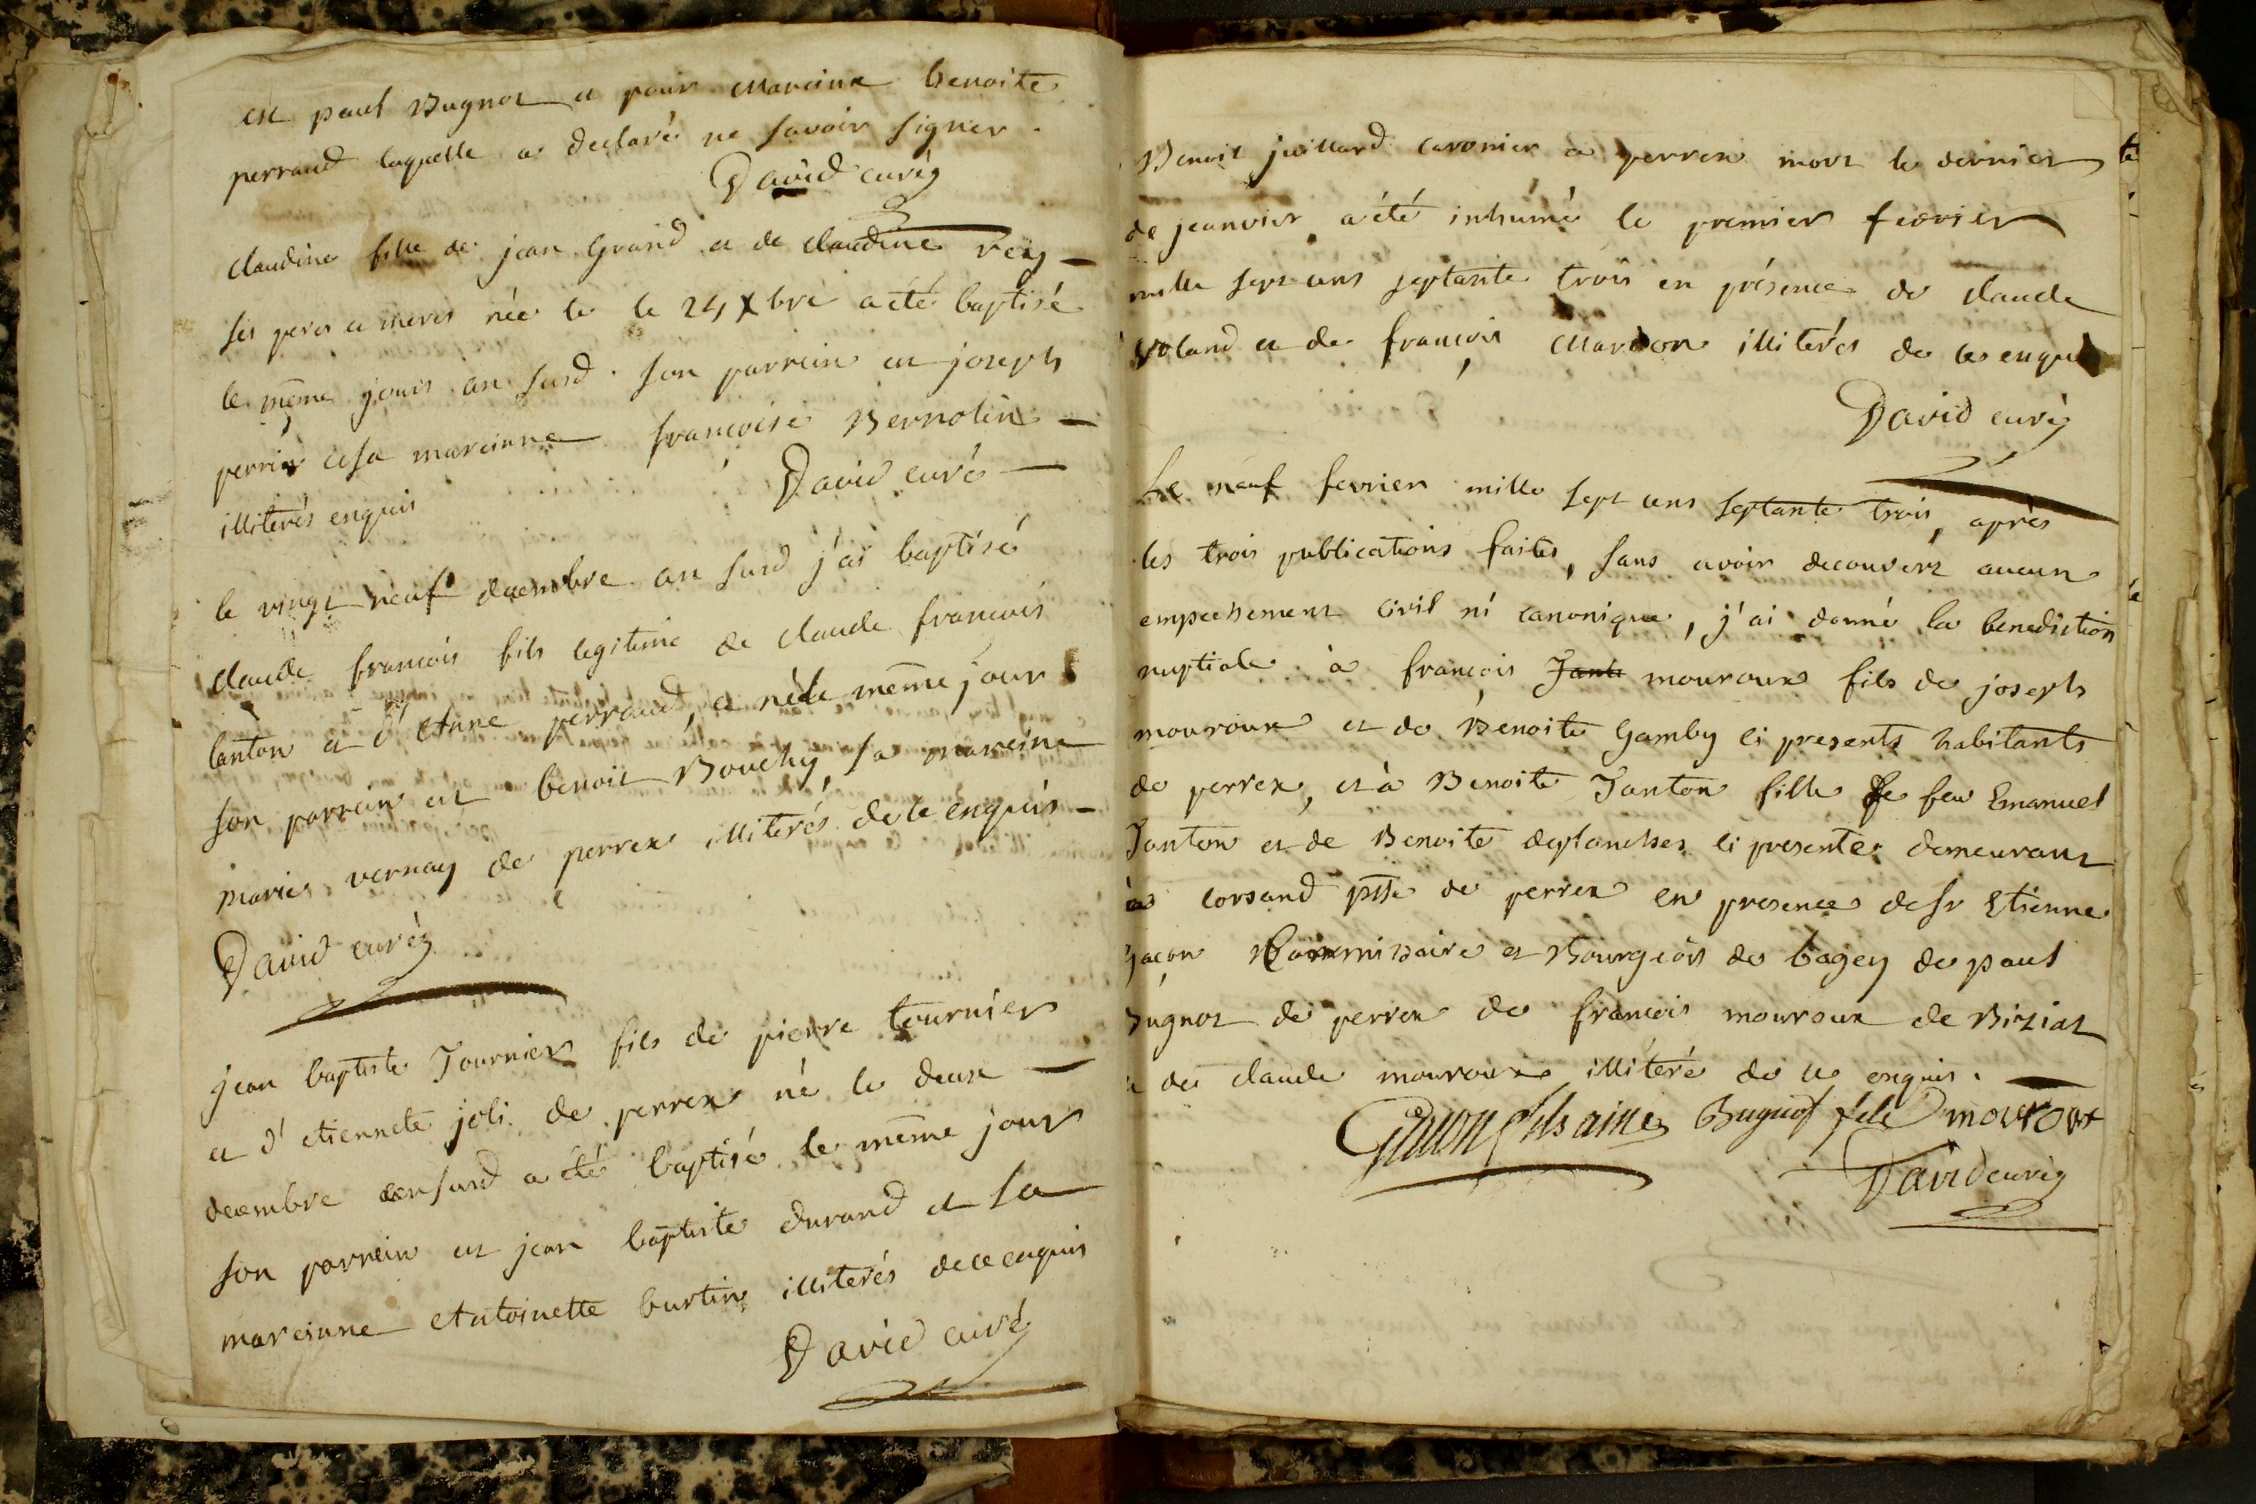 est paul Bugnot et pour Mareine benoite
perraud laquelle a declaré ne savoir signer.
David curé
claudine fille de jean Grand et de claudine rey
ses peres et meres née le le 24 Xbre a été baptisé
le même jours an susd. son parrein est joseph
perrin et sa mareinne francoise Bernolin
illiterés enquis David curé
le vingt neuf decembre an susd j'ai baptisé
claude francois fils legitime de claude francois
lanton et d'Anne perraud, et né le même jour
son parrein est benoit Bouchy sa mareine
marie vernay de perrex illiterés de ce enquis
David curé
jean baptiste Tournier fils de pierre tournier
et d'etiennete joli de perrex né le deux
decembre an susd a été baptisé le même jour
son parrein est jean baptiste durand et sa
mareinne Antoinette burtin illiterés de ce enquis
David curé
Benoit juillard a perrex mort le dernier
de jeanvier a été inhumé le premier fevrier
mille sept cens septante trois en présence de claude
voland et de francois Mardon illiterés de ce enquis
David curé
Le neuf fevrier mille sept cens septante trois, après
les trois publications faites, sans avoir decouvert aucun
empechement civil ni canonique, j'ai donné la benediction
nuptiale à francois mouroux fils de joseph
mouroux et de Benoite Gamby ci presents habitants
de perrex, et à Benoite Janton fille de feu Emanuel
Janton et de Benoite desplanches ci presente demeurant
à corsand psse de perrex en presence de sr Etienne
Gacon Commissaire et Bourgeois de bagey de paul
Bugnot de perrex de francois mouroux de Biziat
et de claude mouroux illiteré de ce enquis.
Gacon fils ainé Bugnot fils mouroux
David curé